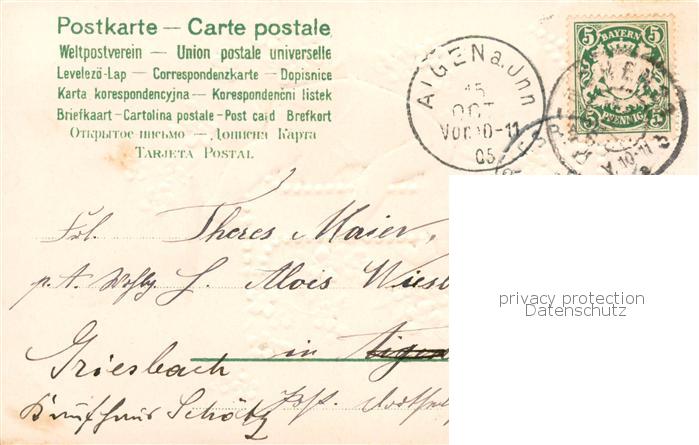 Postkarte — Carte postale
Weltpostverein — Union postale universelle
Levelező-Lap — Correspondenzkarte — Dopisnice
Karta korespondencyjna — Korespondenční listek
Briefkaart - Cartolina postale - Post card Brefkort
Открытое письмо — Дописна Карта
Tarjeta Postal
AIGEN a. Jnn
15
OCT
Vor. 10-11
05
5 BAYERN 5
5 PFENNIG 5
V. 10-11
Frl. Theres Maier,
p. A. Wohlg. H. Alois
in Aigen
Griesbach
Kaufhaus Schätz Post
privacy protection
Datenschutz